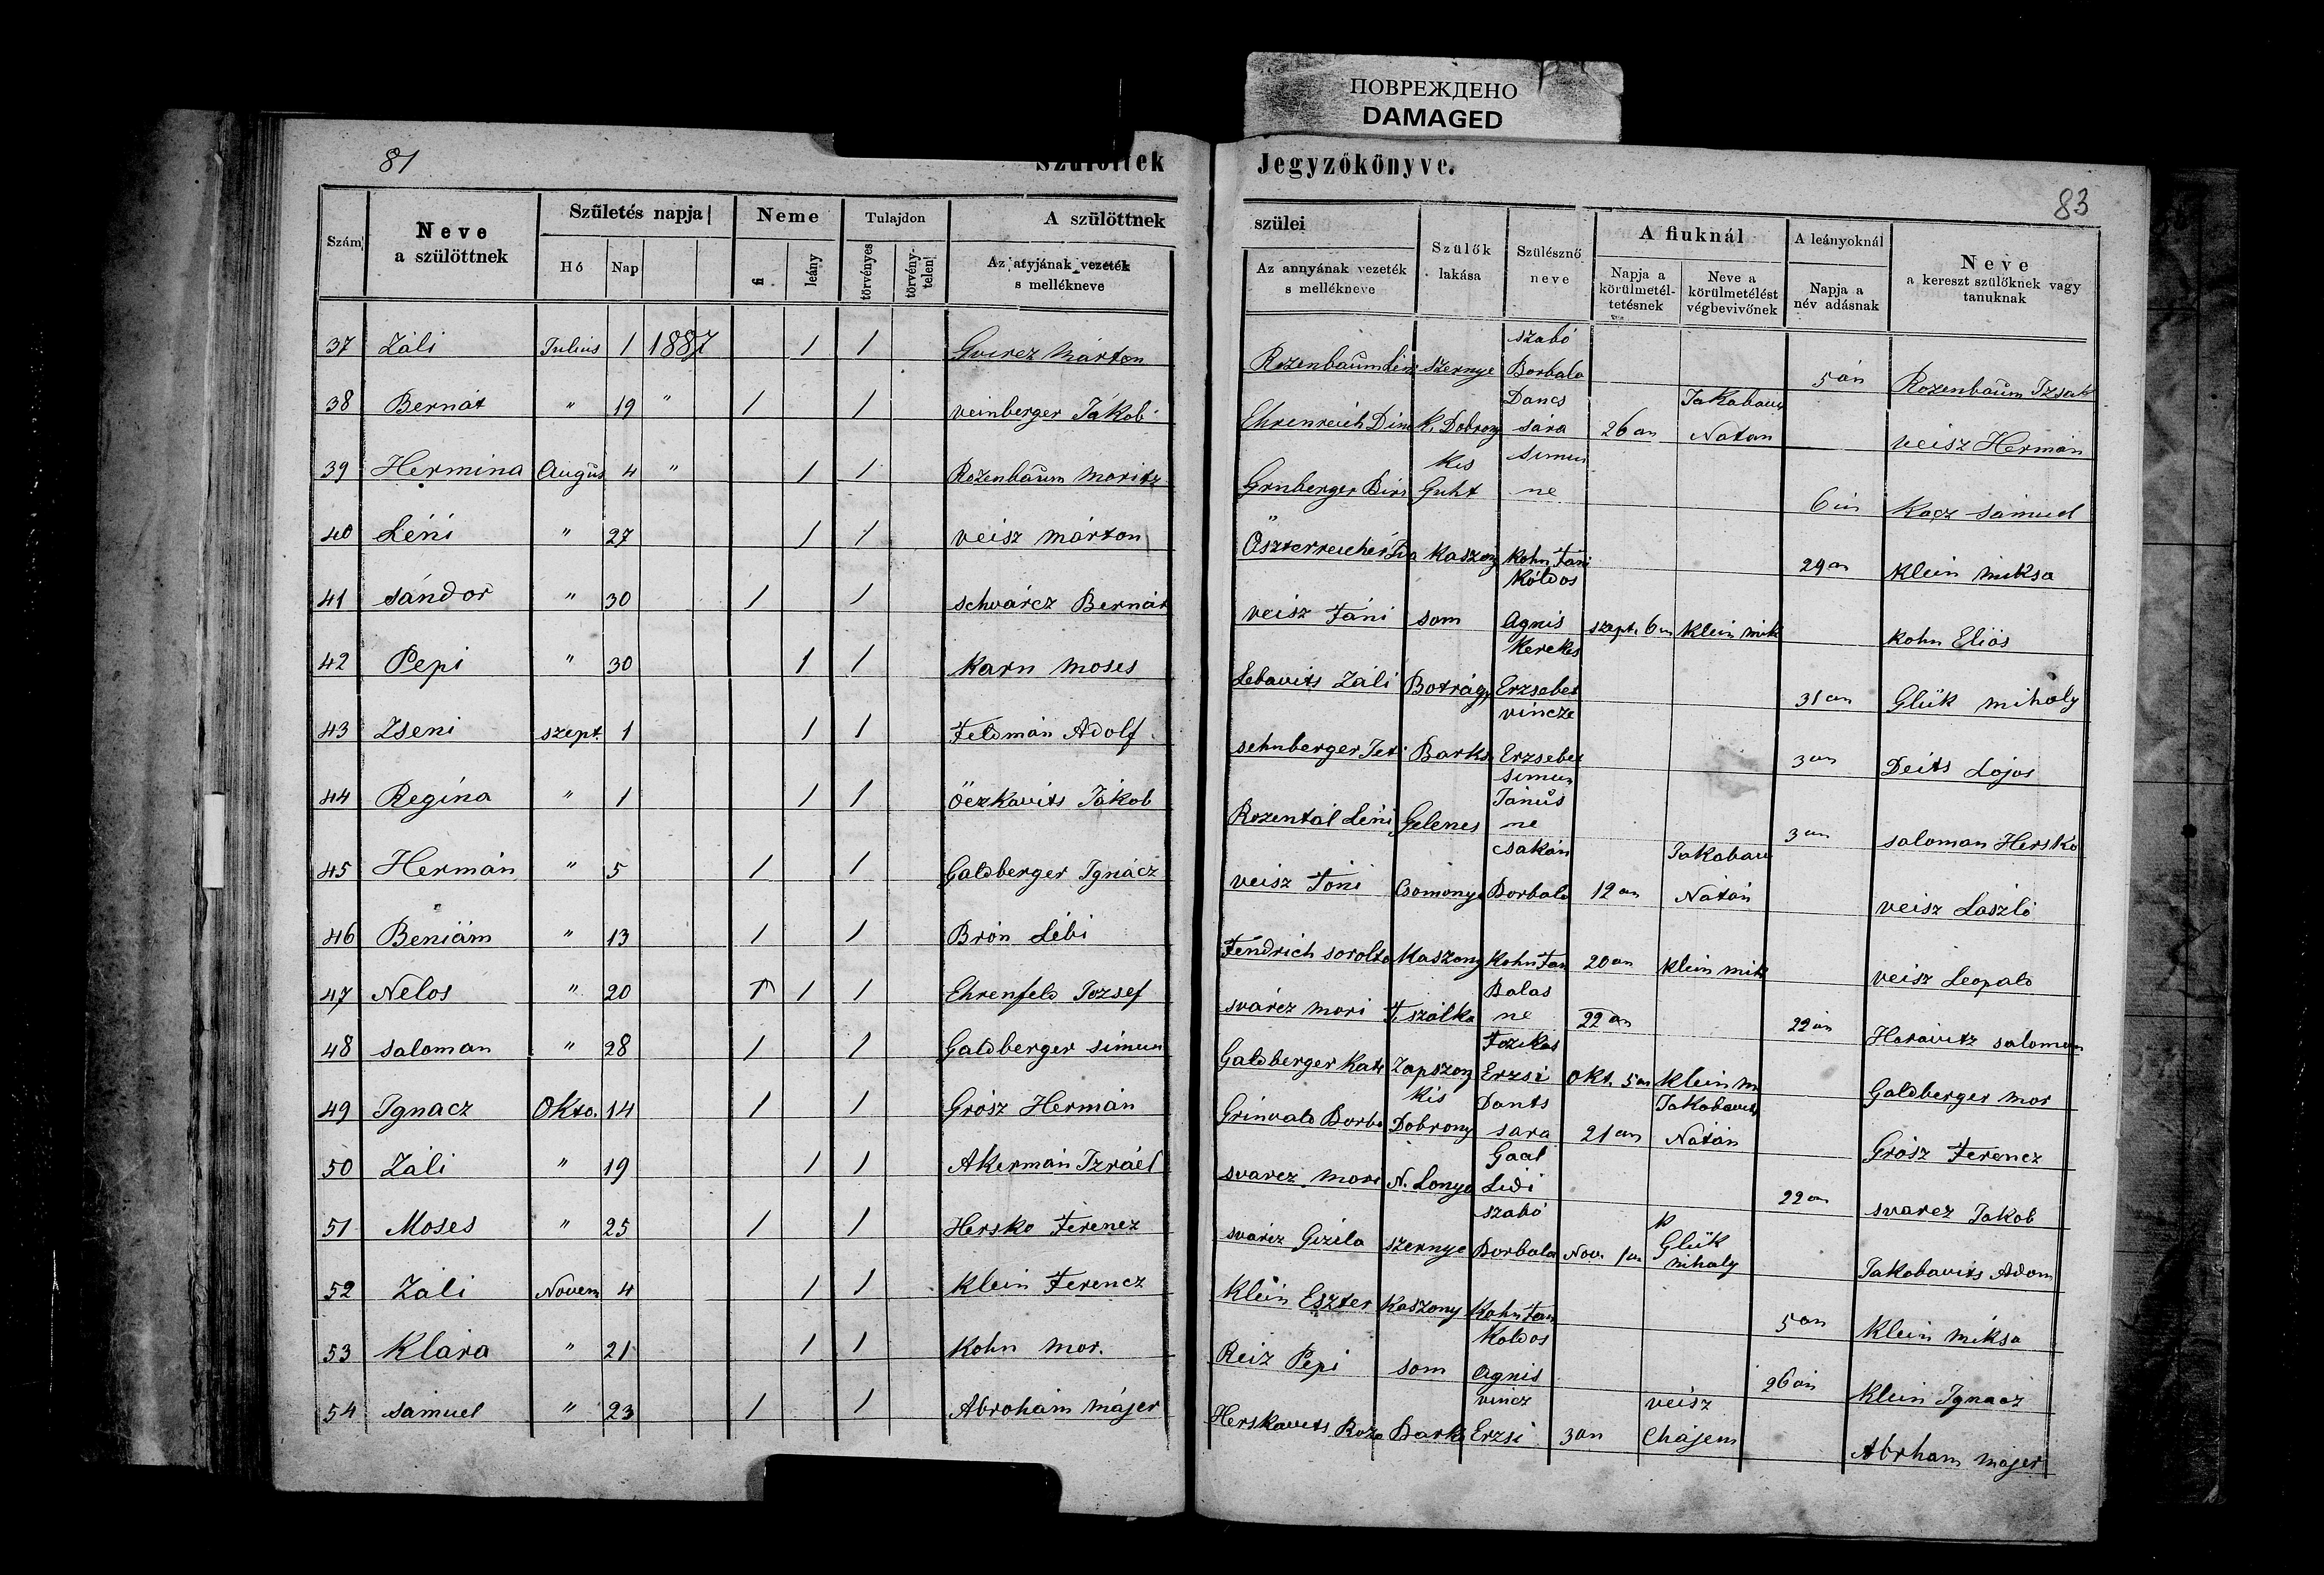 ПОВРЕЖДЕНО
DAMAGED
81
Szülöttek
Jegyzőkönyve.
83
Szám
Neve
a szülöttnek
Születés napja
Hó
Nap
Neme
fi
leány
Tulajdon
törvényes
törvény-
telen
A szülöttnek
Az atyjának vezeték
s mellékneve
szülei
Az annyának vezeték
s mellékneve
Szülők
lakása
Szülésznő
neve
A fiuknál
Napja a
körülmetél-
tetésnek
Neve a
körülmetélést
végbevivőnek
A leányoknál
Napja a
név adásnak
Neve
a kereszt szülőknek vagy
tanuknak
37 Záli Julius 1 1887 / / Márton
Rozenbaum szernye szabó Borbala 5 án Rozenbaum Izsak
38 Bernát " 19 " / / veinberger Jákob
Ehrenreich K. Dobrony Dancs sára 26 an Natan veisz Herman
39 Hermina Augus 4 " / / Rozenbaum moritz
Kis Guht simun ne 6 án Kacz sámuel
40 Léni " 27 / / veisz márton
Kaszony Kohn Fani 29 an Klein miksa
41 sándor " 30 / / schvárcz Bernát
veisz Fáni som Koldos Agnis szept. 6 n Klein mik Kohn Eliás
42 Pepi " 30 / / Karn moses
Lebavits Záli Botrágy Kerekes Erzsebet 31 an Glük mihaly
43 Zseni szept. 1 / / Feldmán Adolf
sehnberger Jeti Barks vincze Erzsebet 3 an Deits Lajos
44 Regina " 1 / / Jákob
Rozentál Léni Gelenes simun Jánus ne 3 an saloman Hersko
45 Hermán " 5 / / Galdberger Ignácz
veisz Toni Csomonya csakán Borbala 12 an Nátán veisz László
46 Beniám " 13 / / Brón Lébi
Fendrich sorolta Kaszony Kohn Fan 20 an Klein mik veisz Leopald
47 Nelos " 20 / / Ehrenfeld Jozsef
svárcz mari F. szálka Balas ne 22 an 22 án Haravitz saloman
48 saloman " 28 / / Galdberger simun
Galdberger Kati Zapszony Erzsi Okt. 5 an Klein m Galdberger mor
49 Ignacz Okto. 14 / / Grósz Hermán
Grinvald Borba Kis Dobrony Dants sara 21 an Jakobavits Nátán Grósz Ferencz
50 Záli " 19 / / Akermán Izráel
svarcz mari N. Lonya Gaal Lidi 22 an svarcz Jakob
51 Moses " 25 / / Hersko Ferencz
svárcz Gizela szernye szabó Borbala Nov. 1 an Glük mihaly Jakobavits Adom
52 Záli Novem 4 / / Klein Ferencz
Klein Eszter Kaszony Kohn Fan 5 an Klein miksa
53 Klára " 21 / / Kohn mor.
Reiz Pepi som Koldos Agnis 26 án Klein Ignacz
54 sámuel " 23 / / Abrohám májer
Herskavits Roza Bark vincz Erzsi 3 an veisz Chájem Abrham majer